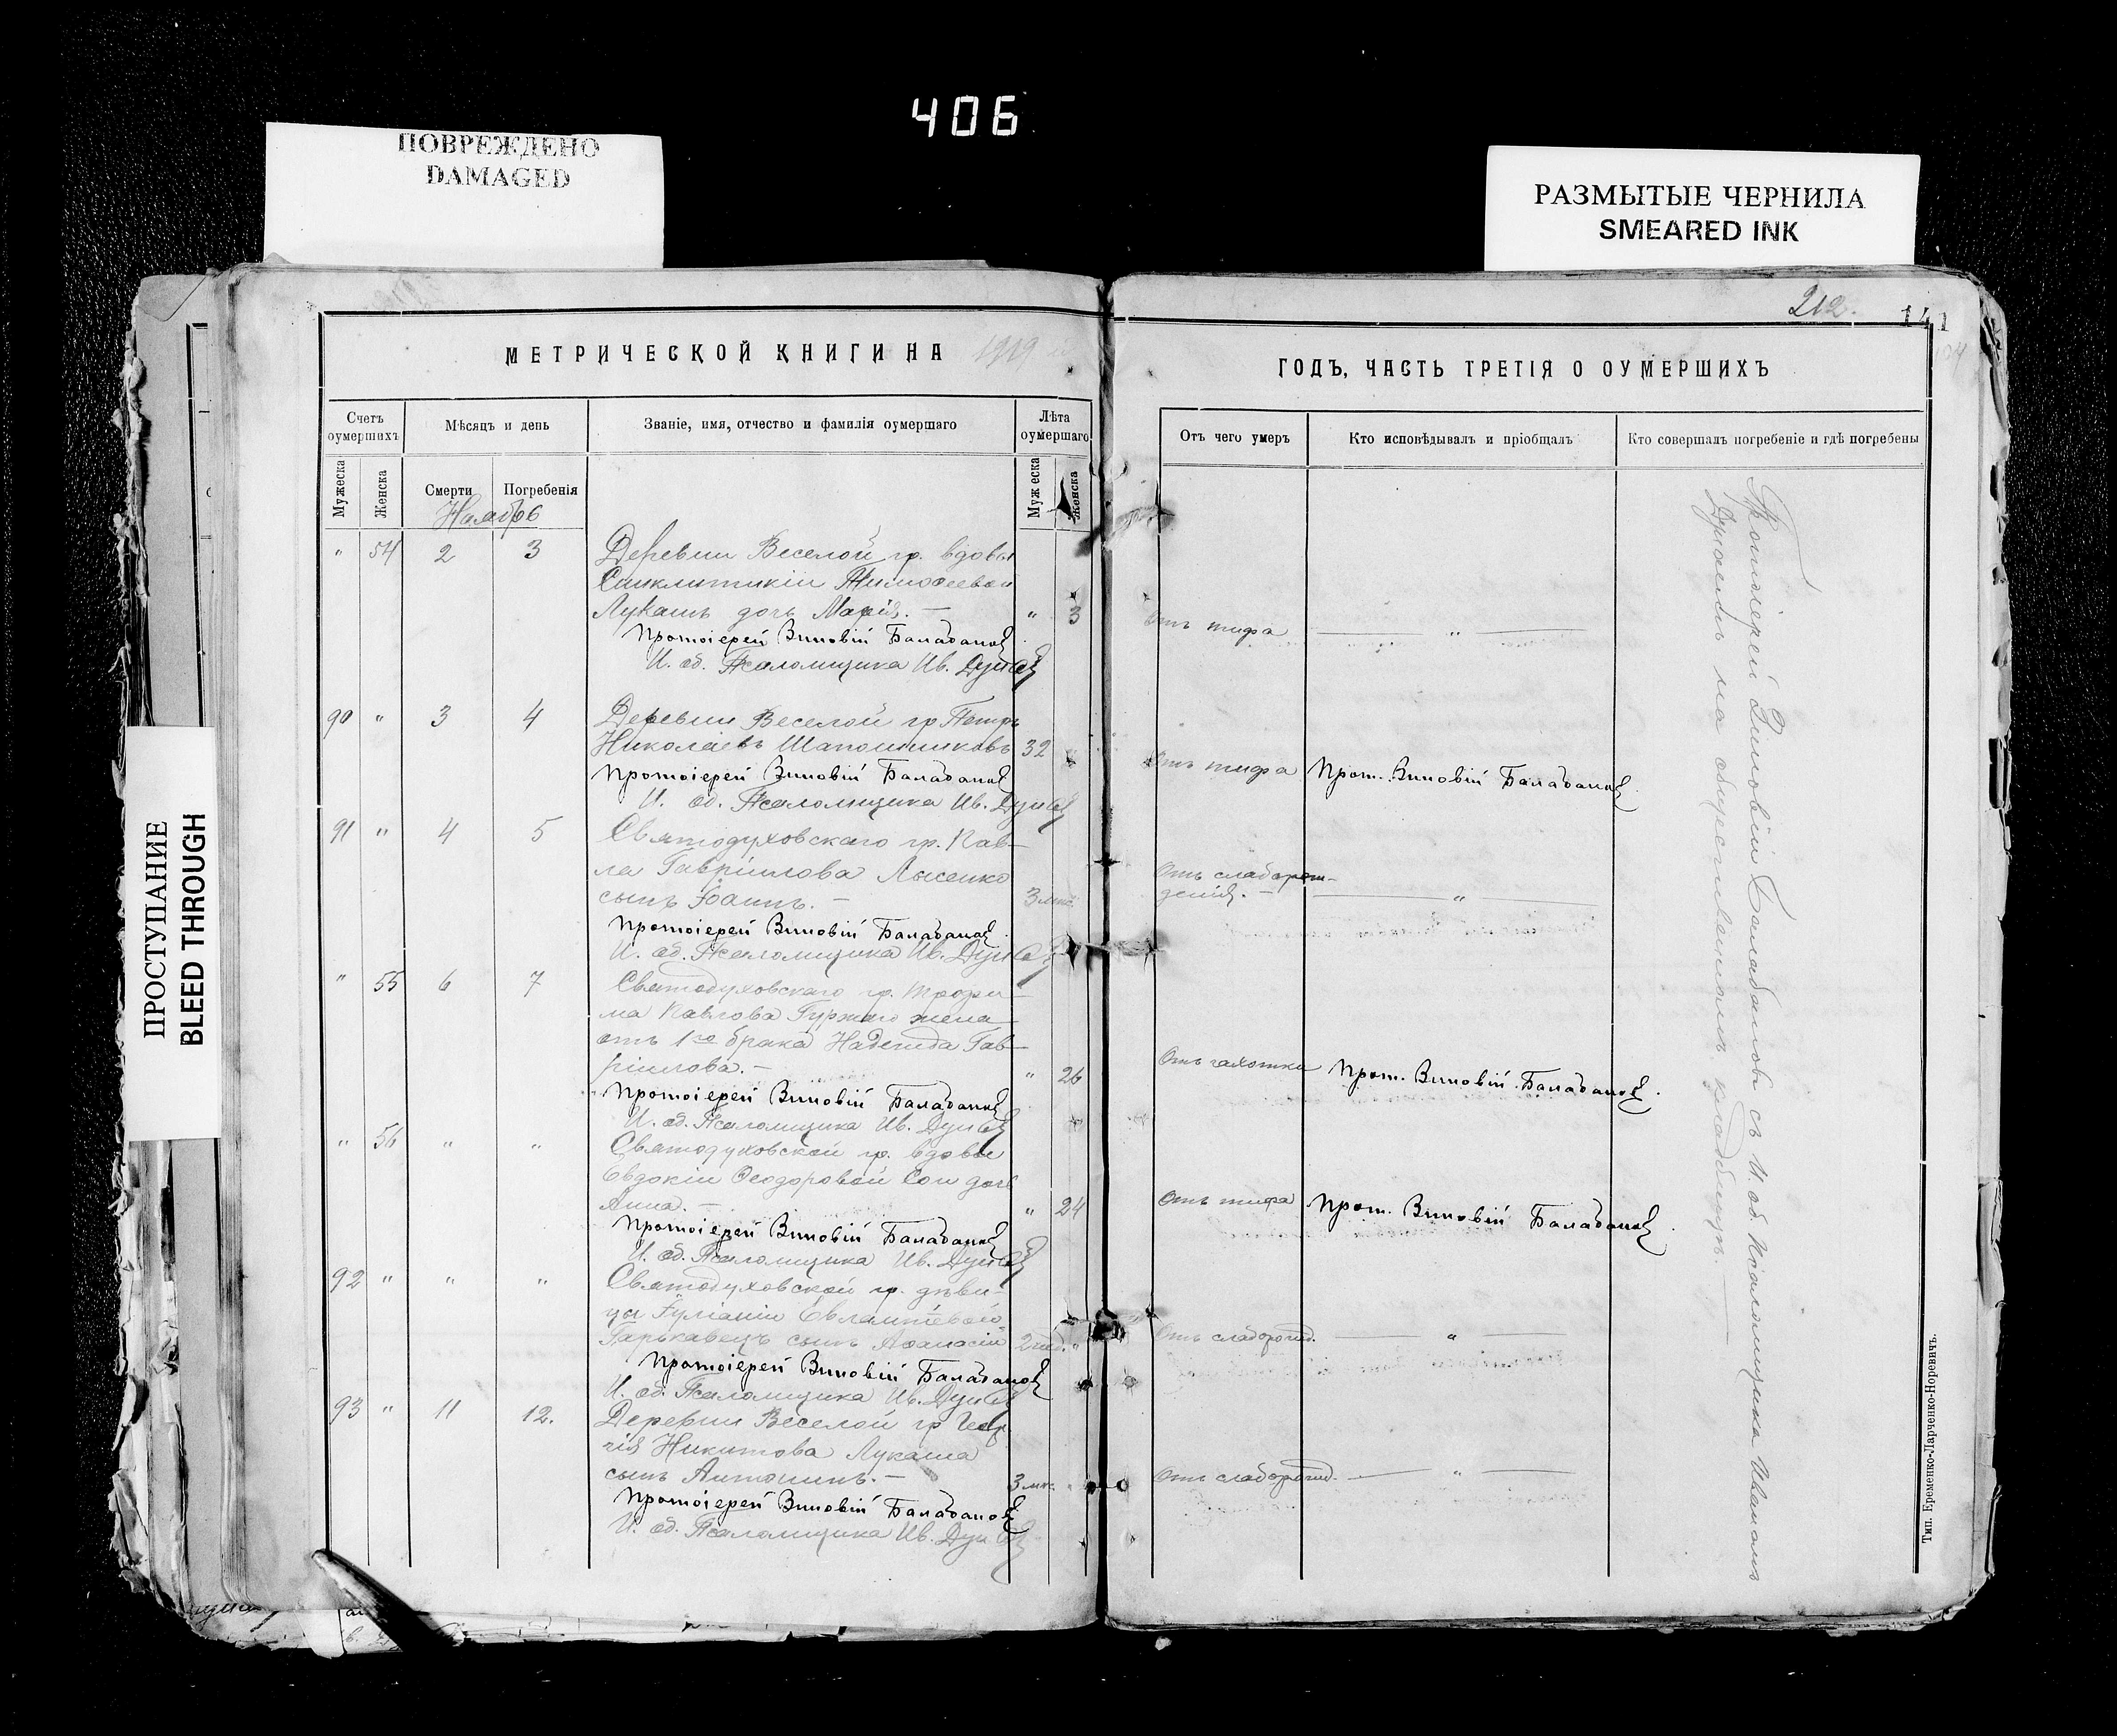 406
ПОВРЕЖДЕНО
DAMAGED
РАЗМЫТЫЕ ЧЕРНИЛА
SMEARED INK
ПРОСТУПАНИЕ
BLEED THROUGH
212.
141
МЕТРИЧЕСКОЙ КНИГИ НА 1919
ГОДЪ, ЧАСТЬ ТРЕТІЯ О ОУМЕРШИХЪ
Счетъ оумершихъ
Мѣсяцъ и день
Званіе, имя, отчество и фамилія оумершаго
Лѣта оумершаго
Отъ чего умеръ
Кто исповѣдывалъ и пріобщалъ
Кто совершалъ погребеніе и гдѣ погребены
Мужеска
Женска
Смерти
Погребенія
Мужеска
Женска
Ноябрь
" 54 2 3 Деревни Веселой гр. вдовы
Синклитикіи Тимоѳеевой
Лукашъ дочь Марія. — " 3 Отъ тифа — " —
Протоіерей Зиновій Балабановъ
И. об. Псаломщика Ив.
90 " 3 4 Деревни Веселой гр Петръ
Николаевъ Шапошниковъ 32 Отъ тифа Прот. Зиновій Балабановъ
Протоіерей Зиновій Балабановъ
И. об. Псаломщика Ив.
91 " 4 5 Святодуховскаго гр. Пав-
ла Гавріилова Лысенко Отъ слаборож-
сынъ Іоаннъ. — 3 мѣс. денія. — " —
Протоіерей Зиновій Балабановъ
И. об. Псаломщика Ив.
" 55 6 7 Святодуховскаго гр. Трофи-
ма Павлова жена
отъ 1го брака Надежда Гав-
ріилова. — " 26 Отъ чахотки Прот. Зиновій Балабановъ.
Протоіерей Зиновій Балабановъ
И. об. Псаломщика Ив.
" 56 " " Святодуховской гр. вдовы
Евдокіи Ѳеодоровой дочь
Анна. — " 24 Отъ тифа Прот. Зиновій Балабановъ
Протоіерей Зиновій Балабановъ
И. об. Псаломщика Ив.
92 " " " Святодуховской гр. дѣви-
цы Іуліаніи
Гарькавецъ сынъ Аѳанасій 2 нед. " Отъ слаборожд. — " —
Протоіерей Зиновій Балабановъ
И. об. Псаломщика Ив.
93 " 11 12. Деревни Веселой гр Геор-
гія Никитова Лукаша
сынъ Антонинъ. — 3 мѣс. Отъ слаборожд. — " —
Протоіерей Зиновій Балабановъ
И. об. Псаломщика Ив.
Протоіерей Зиновій Балабановъ съ И. об. Псаломщика Иваномъ
на общественномъ кладбищѣ. —
Тип. Еременко-Ларченко-Норевичъ.